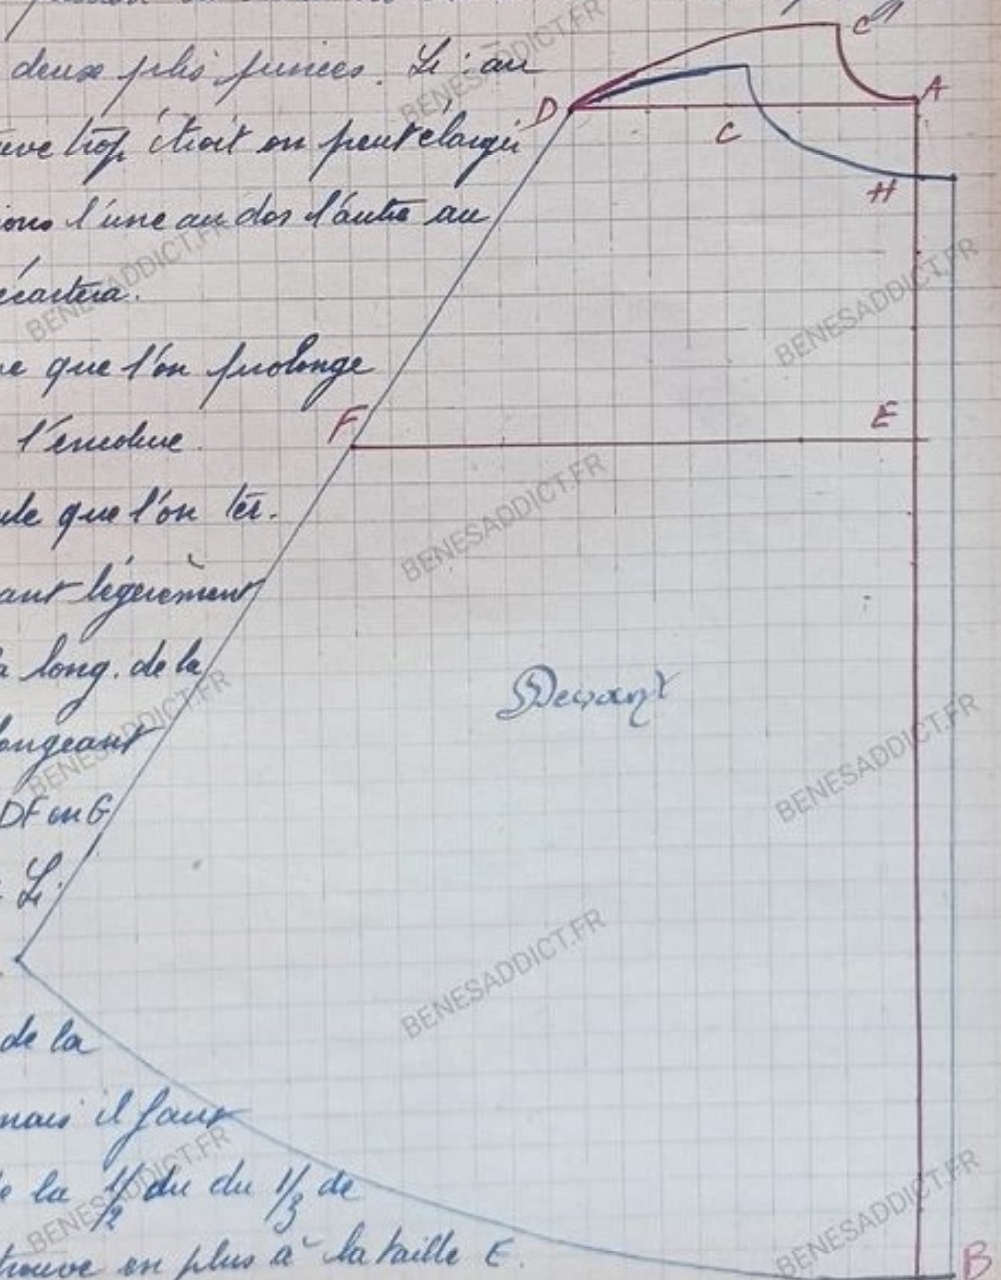 deux plis pinces. Si au
trop étroit on peut élargir
l'une au dos l'autre au
écartera.
que l'on prolonge
l'encolure.
que l'on
légèrement
long. de la
DF en G
Si
de la
mais il faut
la 1/2 du du 1/3 de
trouve en plus à la taille E.
C
D
A
C
H
F
E
Devant
B
BENESADDICT.FR
BENESADDICT.FR
BENESADDICT.FR
BENESADDICT.FR
BENESADDICT.FR
BENESADDICT.FR
BENESADDICT.FR
BENESADDICT.FR
BENESADDICT.FR